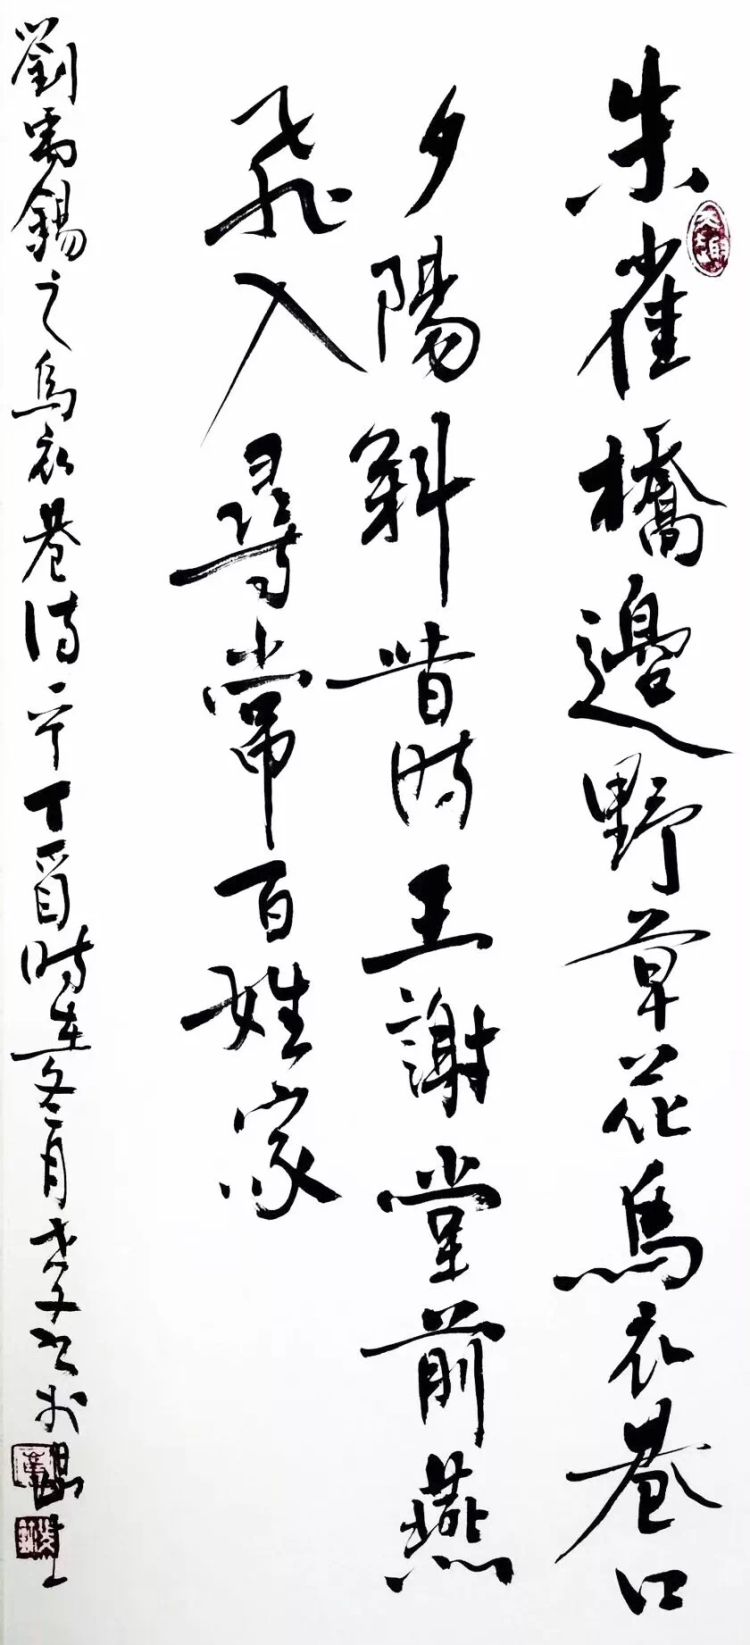 朱雀橋邊野草花烏衣巷口
夕陽斜昔時王謝堂前燕
飛入尋常百姓家
劉禹錫之烏衣巷詩丁酉時在冬月